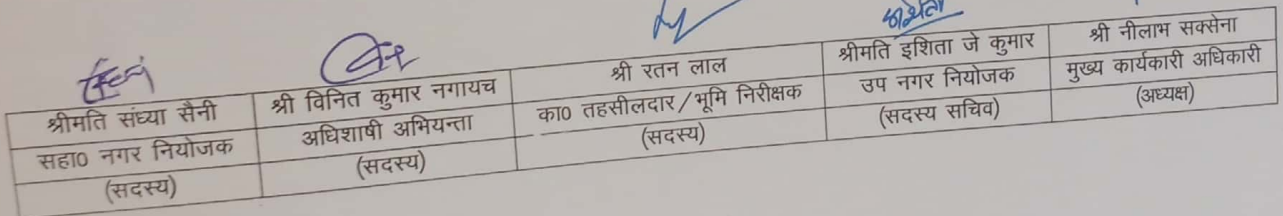 श्रीमति संध्या सैनी श्री विनित कुमार नगायच श्री रतन लाल श्रीमति इशिता जे कुमार श्री नीलाभ सक्सेना
सहा0 नगर नियोजक अधिशाषी अभियन्ता का0 तहसीलदार/भूमि निरीक्षक उप नगर नियोजक मुख्य कार्यकारी अधिकारी
(सदस्य) (सदस्य) (सदस्य) (सदस्य सचिव) (अध्यक्ष)